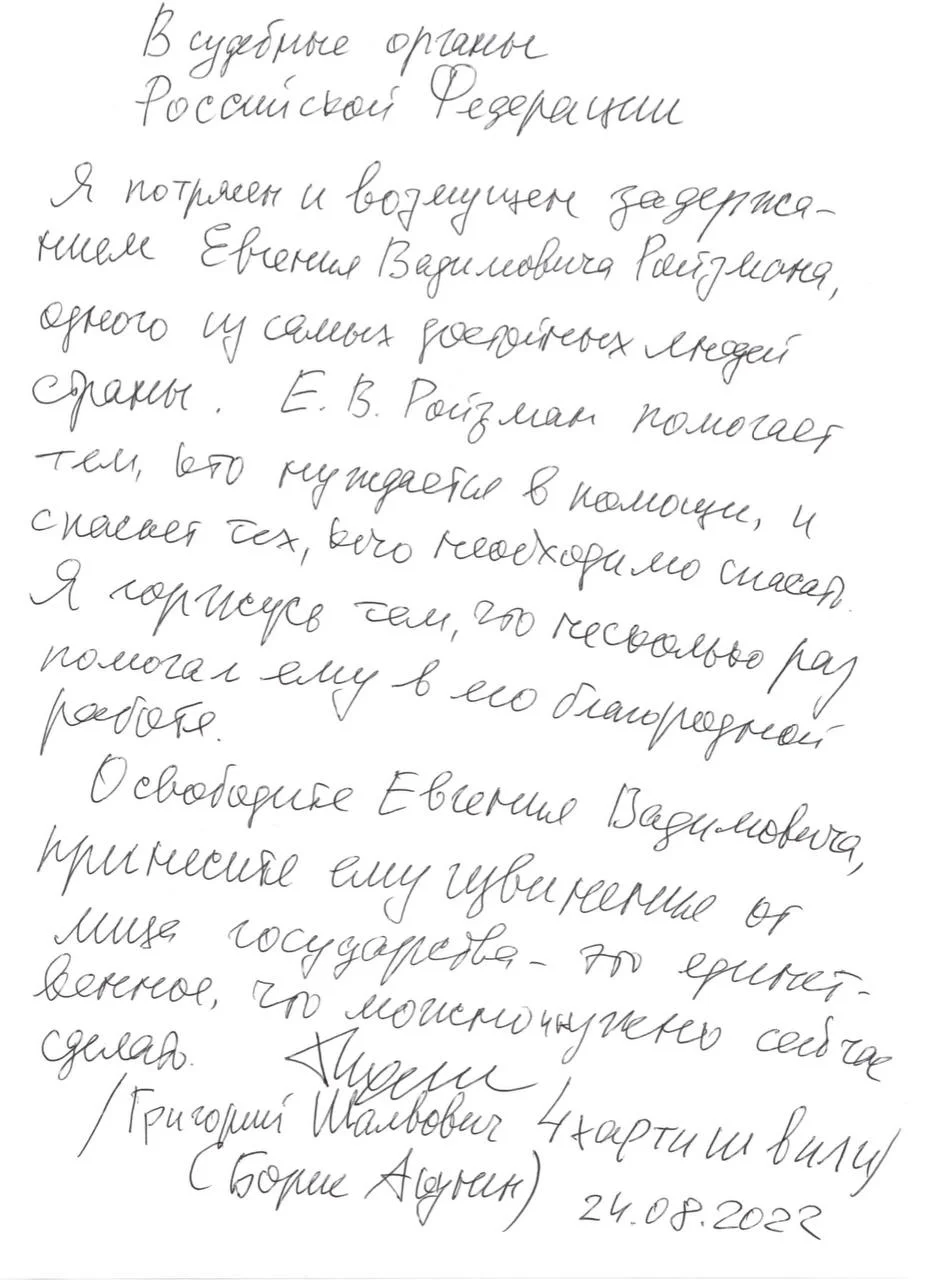 В судебные органы
Российской Федерации
Я потрясен и возмущен задержа-
нием Евгения Вадимовича Ройзмана,
одного из самых достойных людей
страны. Е. В. Ройзман помогает
тем, кто нуждается в помощи, и
спасает тех, кого необходимо спасать.
Я горжусь тем, что несколько раз
помогал ему в его благородной
работе.
Освободите Евгения Вадимовича,
принесите ему извинения от
лица государства – это единст-
венное, что можно и нужно сейчас
сделать.
/Григорий Шалвович Чхартишвили/
(Борис Акунин) 24.08.2022